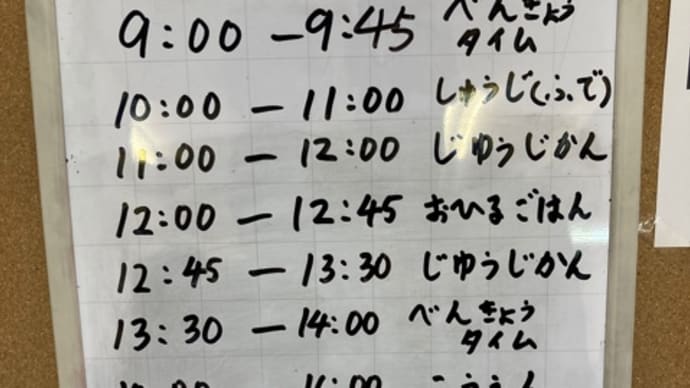 9:00 ー 9:45 べんきょう
タイム
10:00 ー 11:00 しゅうじ(ふで)
11:00 ー 12:00 じゆうじかん
12:00 ー 12:45 おひるごはん
12:45 ー 13:30 じゆうじかん
13:30 ー 14:00 べんきょう
タイム